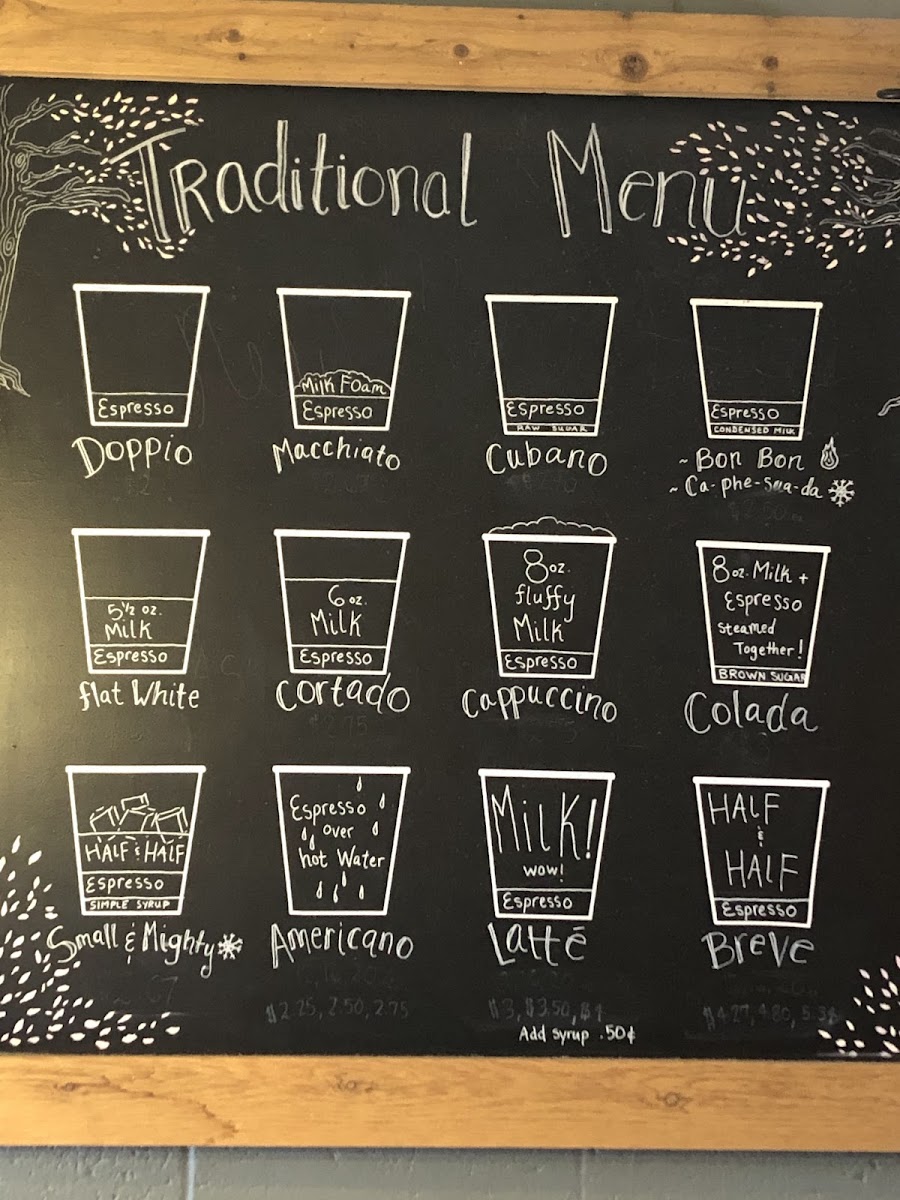 Traditional Menu
Espresso
Doppio
Milk Foam
Espresso
Macchiato
Espresso
RAW SUGAR
Cubano
Espresso
CONDENSED MILK
~ Bon Bon
~ Ca-phe-sua-da
5½ oz.
Milk
Espresso
flat White
6 oz.
Milk
Espresso
Cortado
$2.75
8oz.
fluffy
Milk
Espresso
Cappuccino
8oz. Milk +
Espresso
steamed
Together!
BROWN SUGAR
Colada
HALF & HALF
Espresso
SIMPLE SYRUP
Small & Mighty
Espresso
over
hot Water
Americano
$2.25, 2.50, 2.75
Milk!
wow!
Espresso
Latté
$3, $3.50, $4
Add syrup .50¢
HALF
&
HALF
Espresso
Breve